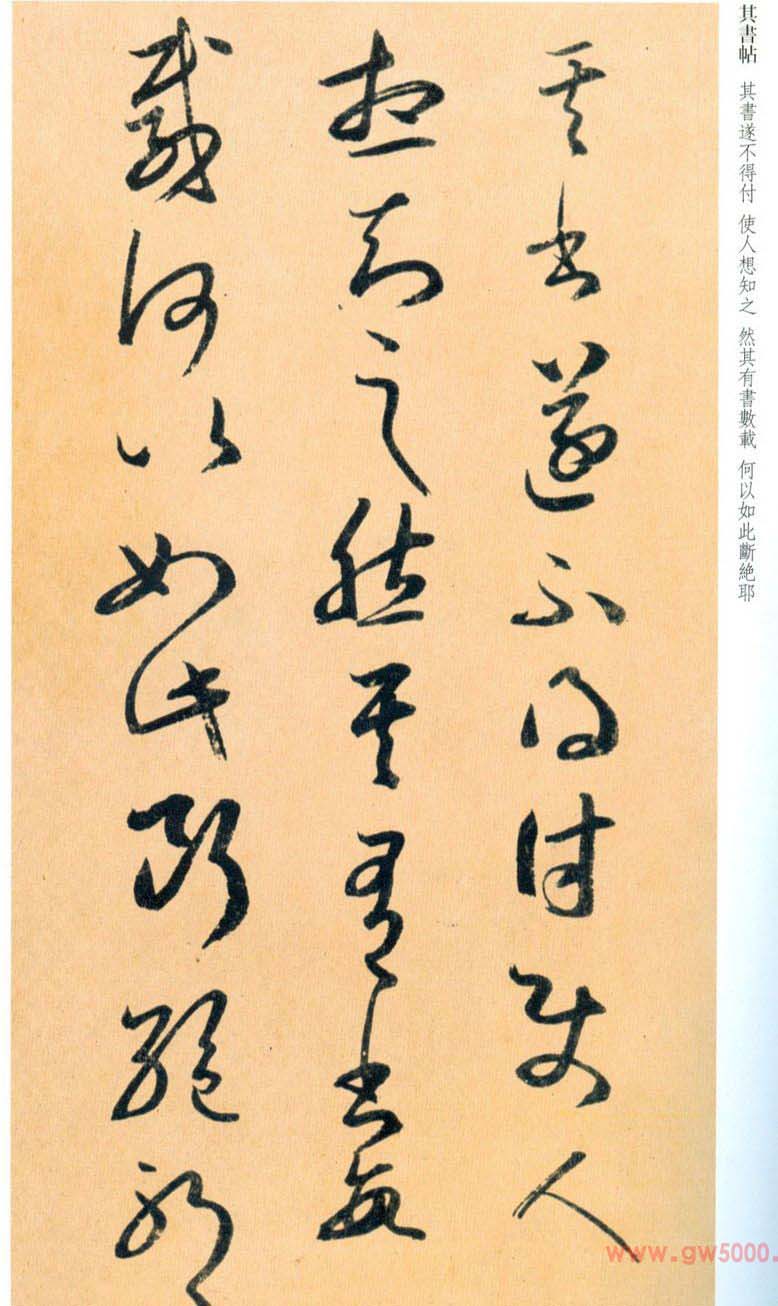 其書帖　其書遂不得付　使人想知之　然其有書數載　何以如此斷絶耶
其書遂不得付使人
想知之然其有書數
載何以如此斷絶耶
www.gw5000.